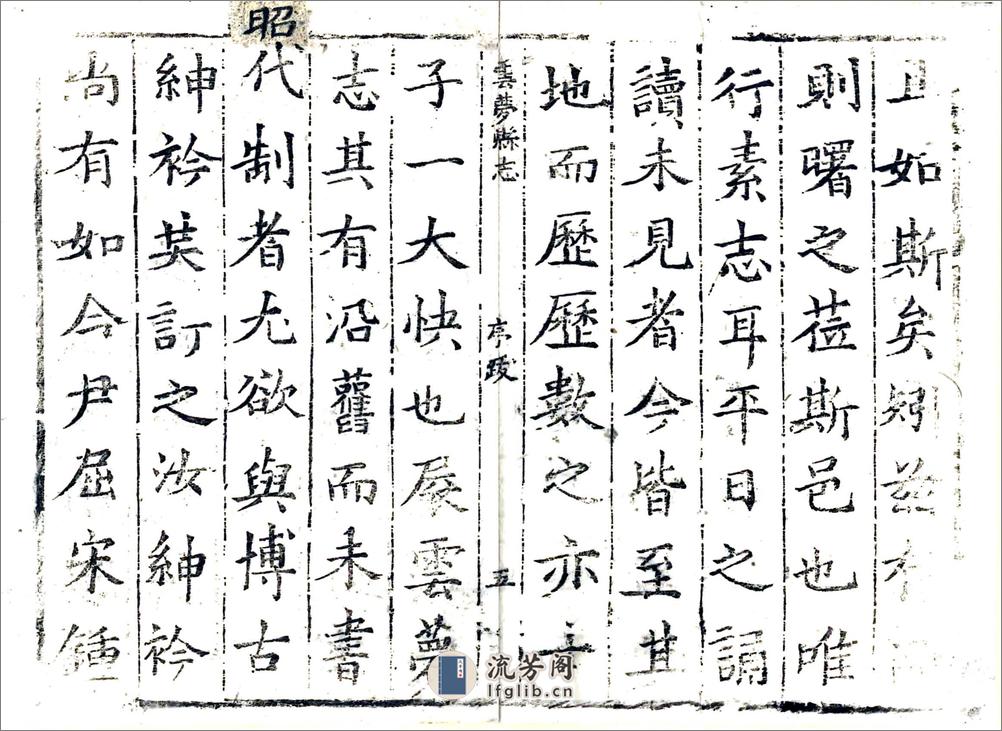 如斯矣矧茲
則曙之蒞斯邑也唯
行素志耳平日之誦
讀未見者今皆至其
地而歷歷數之亦
雲夢縣志 序跋 五
子一大快也展雲夢
志其有沿舊而未書
昭代制者尤欲與博古
紳衿共訂之汝紳衿
尚有如今尹屈宋鍾
流芳阁
lfglib.cn